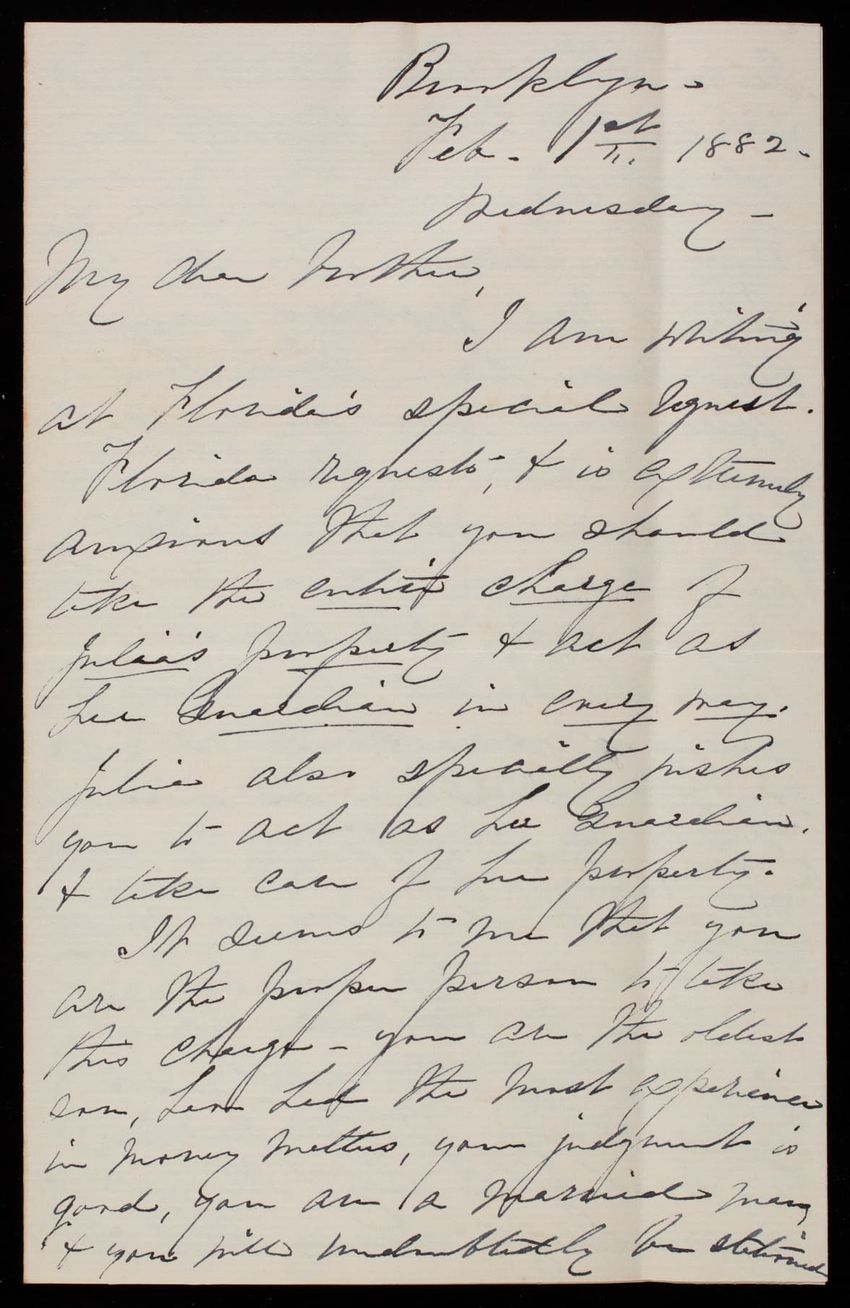 Brooklyn -
Feb. 1st 1882.
Wednesday -
My dear brother,
I am writing
at Florida's special request.
Florida requests, & is extremely
anxious that you should
take the entire charge of
Julia's property & act as
her Guardian in every way.
Julia also specially wishes
you to act as her Guardian,
& take care of her property.
It seems to me that you
are the proper person to take
this charge - you are the oldest
son, have had the most experience
in money matters, your judgment is
good, you are a married man,
& you will undoubtedly be stationed